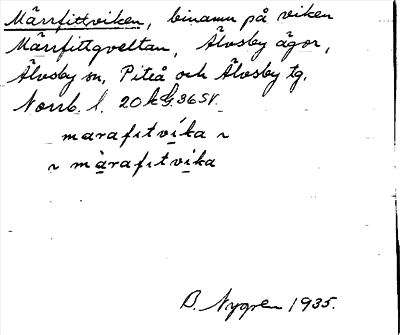 Märrfittviken, binamn på viken
Märrfittqveltan, Älvsby ägor,
Älvsby sn, Piteå och Älvsby tg,
Norrb. l. 20 k
marafıtvíka ~
~ màrafıtvíka
B. Nygren 1935.